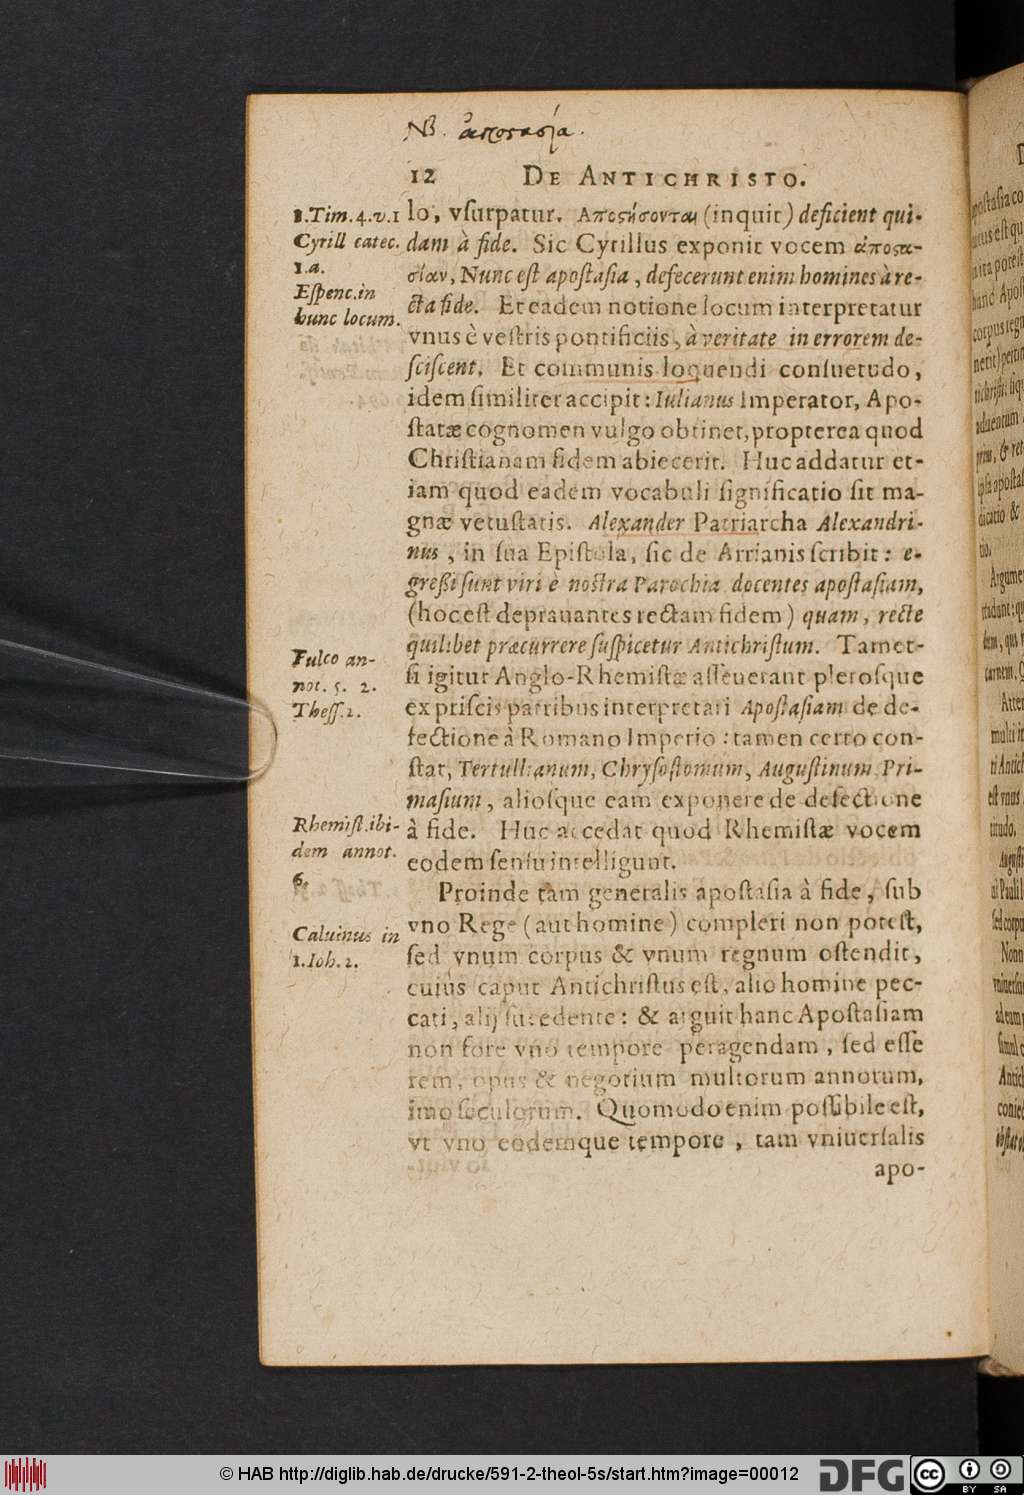 NB. ἀποστασία.
12 DE ANTICHRISTO.
1.Tim.4.v.1
Cyrill catec.
1.a.
Espenc.in
hunc locum.
lo, vſurpatur. Αποστήσονται (inquit) deficient qui-
dam à fide. Sic Cyrillus exponit vocem ἀποστα-
σίαν, Nunc eſt apoſtaſia, defecerunt enim homines à re-
cta fide. Et eadem notione locum interpretatur
vnus è veſtris pontificiis, à veritate in errorem de-
ſciſcent. Et communis loquendi conſuetudo,
idem ſimiliter accipit: Iulianus Imperator, Apo-
ſtatæ cognomen vulgo obtinet, propterea quod
Chriſtianam fidem abiecerit. Huc addatur et-
iam quod eadem vocabuli ſignificatio ſit ma-
gnæ vetuſtatis. Alexander Patriarcha Alexandri-
nus, in ſua Epiſtola, ſic de Arrianis ſcribit: e-
greßi ſunt viri è noſtra Parochia docentes apoſtaſiam,
(hoc eſt deprauantes rectam fidem) quam, recte
quilibet præcurrere ſuſpicetur Antichriſtum. Tamet-
ſi igitur Anglo-Rhemiſtæ aſſeuerant pleroſque
ex priſcis patribus interpretari Apoſtaſiam de de-
fectione à Romano Imperio: tamen certo con-
ſtat, Tertullianum, Chryſoſtomum, Auguſtinum, Pri-
maſium, alioſque eam exponere de defectione
à fide. Huc accedat quod Rhemiſtæ vocem
eodem ſenſu intelligunt.
Fulco an-
not. 5. 2.
Theſſ.2.
Rhemiſt.ibi-
dem annot.
6.
Caluinus in
1.Ioh.2.
Proinde tam generalis apoſtaſia à fide, ſub
vno Rege (aut homine) compleri non poteſt,
ſed vnum corpus & vnum regnum oſtendit,
cuius caput Antichriſtus eſt, alio homine pec-
cati, alij ſuccedente: & arguit hanc Apoſtaſiam
non fore vno tempore peragendam, ſed eſſe
rem, opus & negotium multorum annorum,
imo ſeculorum. Quomodo enim poſſibile eſt,
vt vno eodemque tempore, tam vniuerſalis
apo-
© HAB http://diglib.hab.de/drucke/591-2-theol-5s/start.htm?image=00012
DFG
cc
BY SA